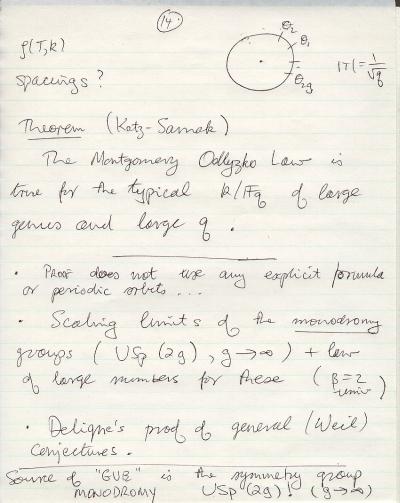 14.
ζ(T, k)
θ₂
θ₁
θ₂g
|T| = 1/√q
spacings?
Theorem (Katz-Sarnak)
The Montgomery Odlyzko Law is
true for the typical k/Fq of large
genus and large q.
• Proof does not use any explicit formula
or periodic orbits...
• Scaling limits of the monodromy
groups (USp(2g), g→∞) + law
of large numbers for these (β=2 univ)
• Deligne's proof of general (Weil)
Conjectures.
Source of "GUE" is the symmetry group
MONODROMY USp(2g)! (g→∞)